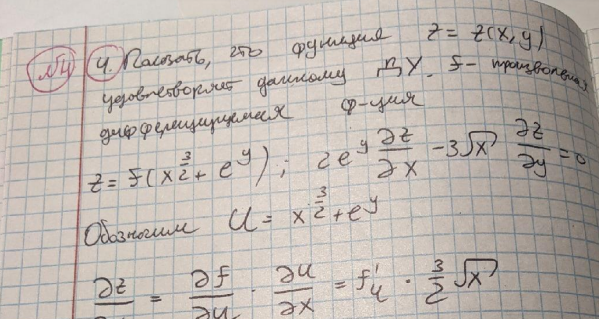 №4 4. Показать, что функция z = z(x, y)
удовлетворяет данному ДУ. f - произвольная
дифференцируемая ф-ция
z = f(x^{3/2} + e^y); 2e^y ∂z/∂x - 3√x ∂z/∂y = 0
Обозначим u = x^{3/2} + e^y
∂z/∂x = ∂f/∂u · ∂u/∂x = f'_u · 3/2 √x